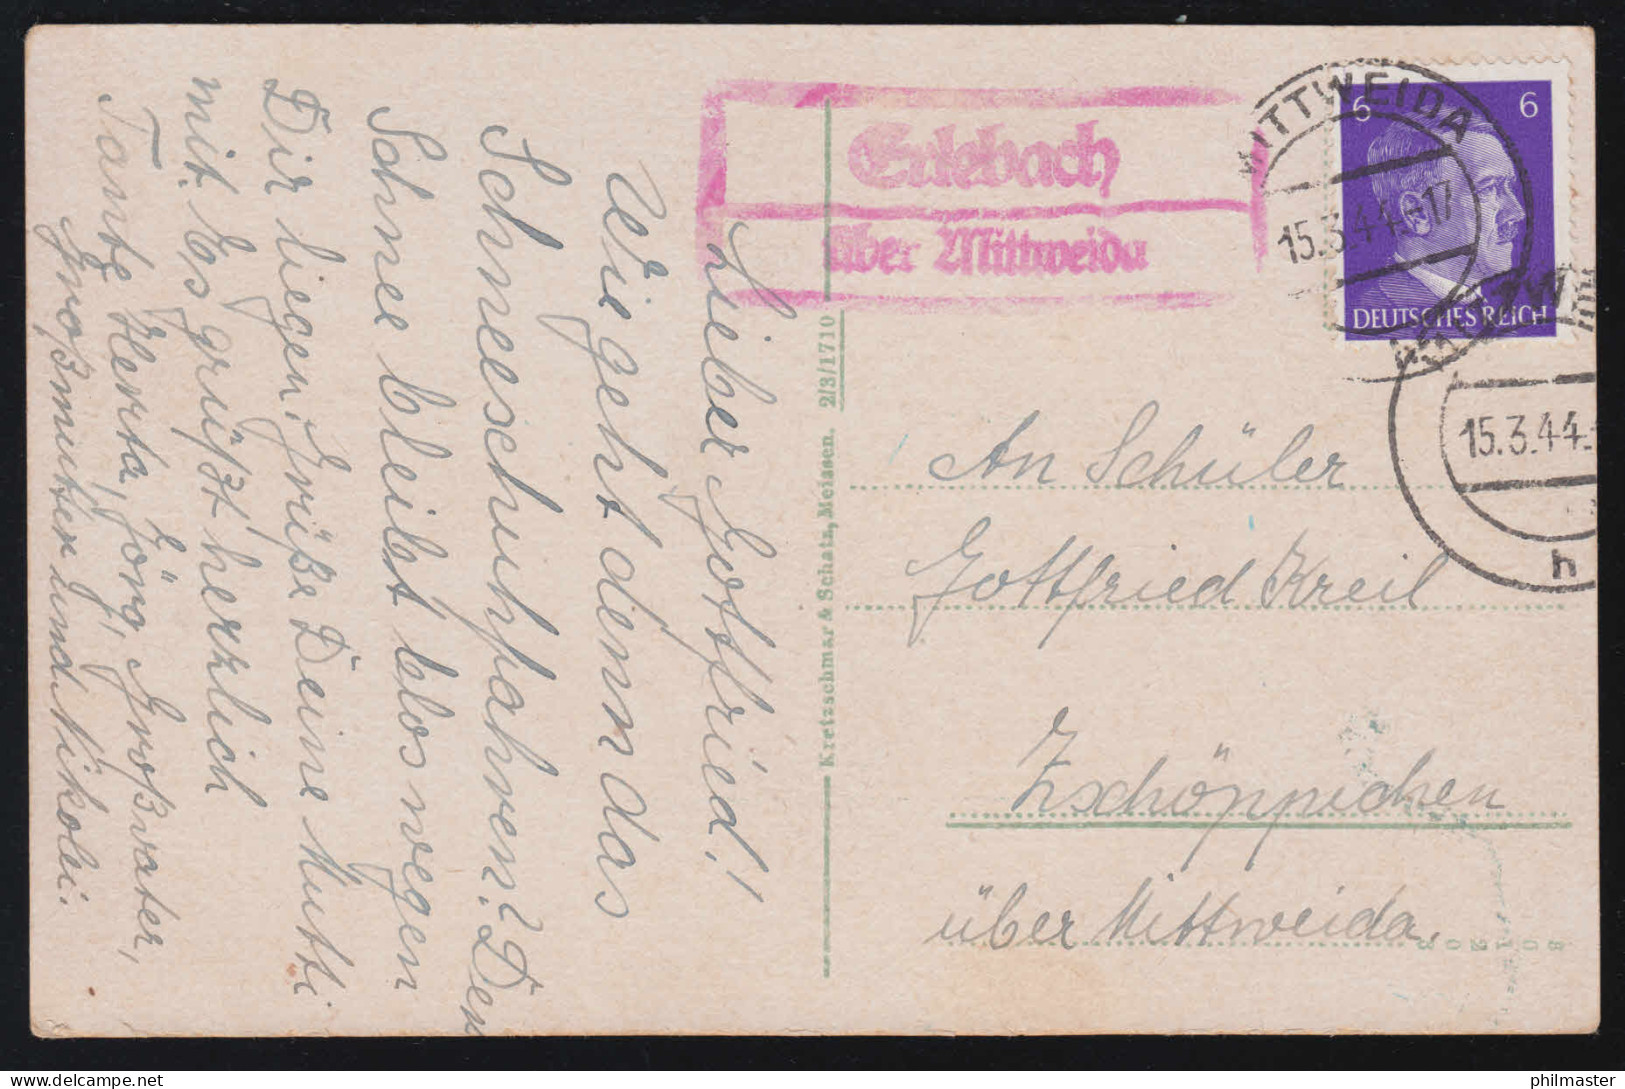 Lieber Gottfried!
Wie geht denn das
Schneeschuhfahren? Der
Schnee bleibt blos wegen
Dir liegen. Grüße Deine Mutti
mit. Es grüßt herzlich
Tante Herta, Jörg, Großvater,
Großmutter und Nikolei.
Kretzschmar & Schatz, Meissen. 2/3/1710
Erlebach
über Mittweida
MITTWEIDA
15.3.44 17
6 6
DEUTSCHES REICH
15.3.44
h
An Schüler
Gottfried Kreil
Zschöppichen
über Mittweida.
philmaster